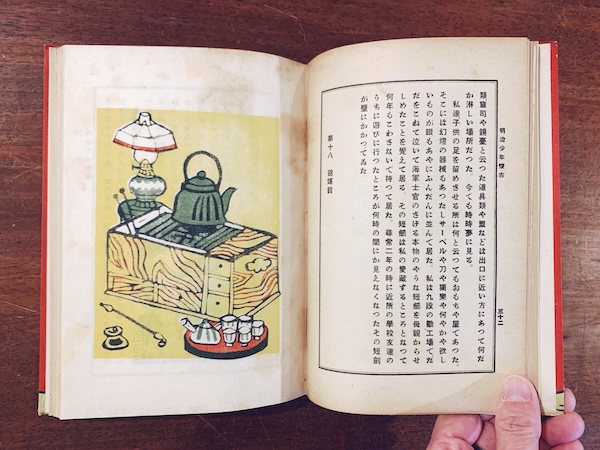 明治少年懐古
三十二
類簞司や鏡臺と云つた道具類や疊などは出口に近い方にあつて何だ
か淋しい場所だつた　今でも時時夢に見る。
私達子供の足を留めさせる所は何と云つてもおもちや屋であつた。
そこには幻燈の器械もあつたしサーベルや刀や獨樂や何やかや欲し
いものが眼もあやにふんだんに並んで居た。私は九段の勸工場でだ
だをこねて泣いて海軍士官のさげる本物のやうな短劒を母親からせ
しめたことを覺えて居る　その短劒は私の愛藏するところとなつて
何年もこわさないで持つて居た。尋常二年の時に近所の學校友達の
うちに遊びに行つたところが何時の間にか見えなくなつたその短劍
が壁にかかつてゐた
第十八